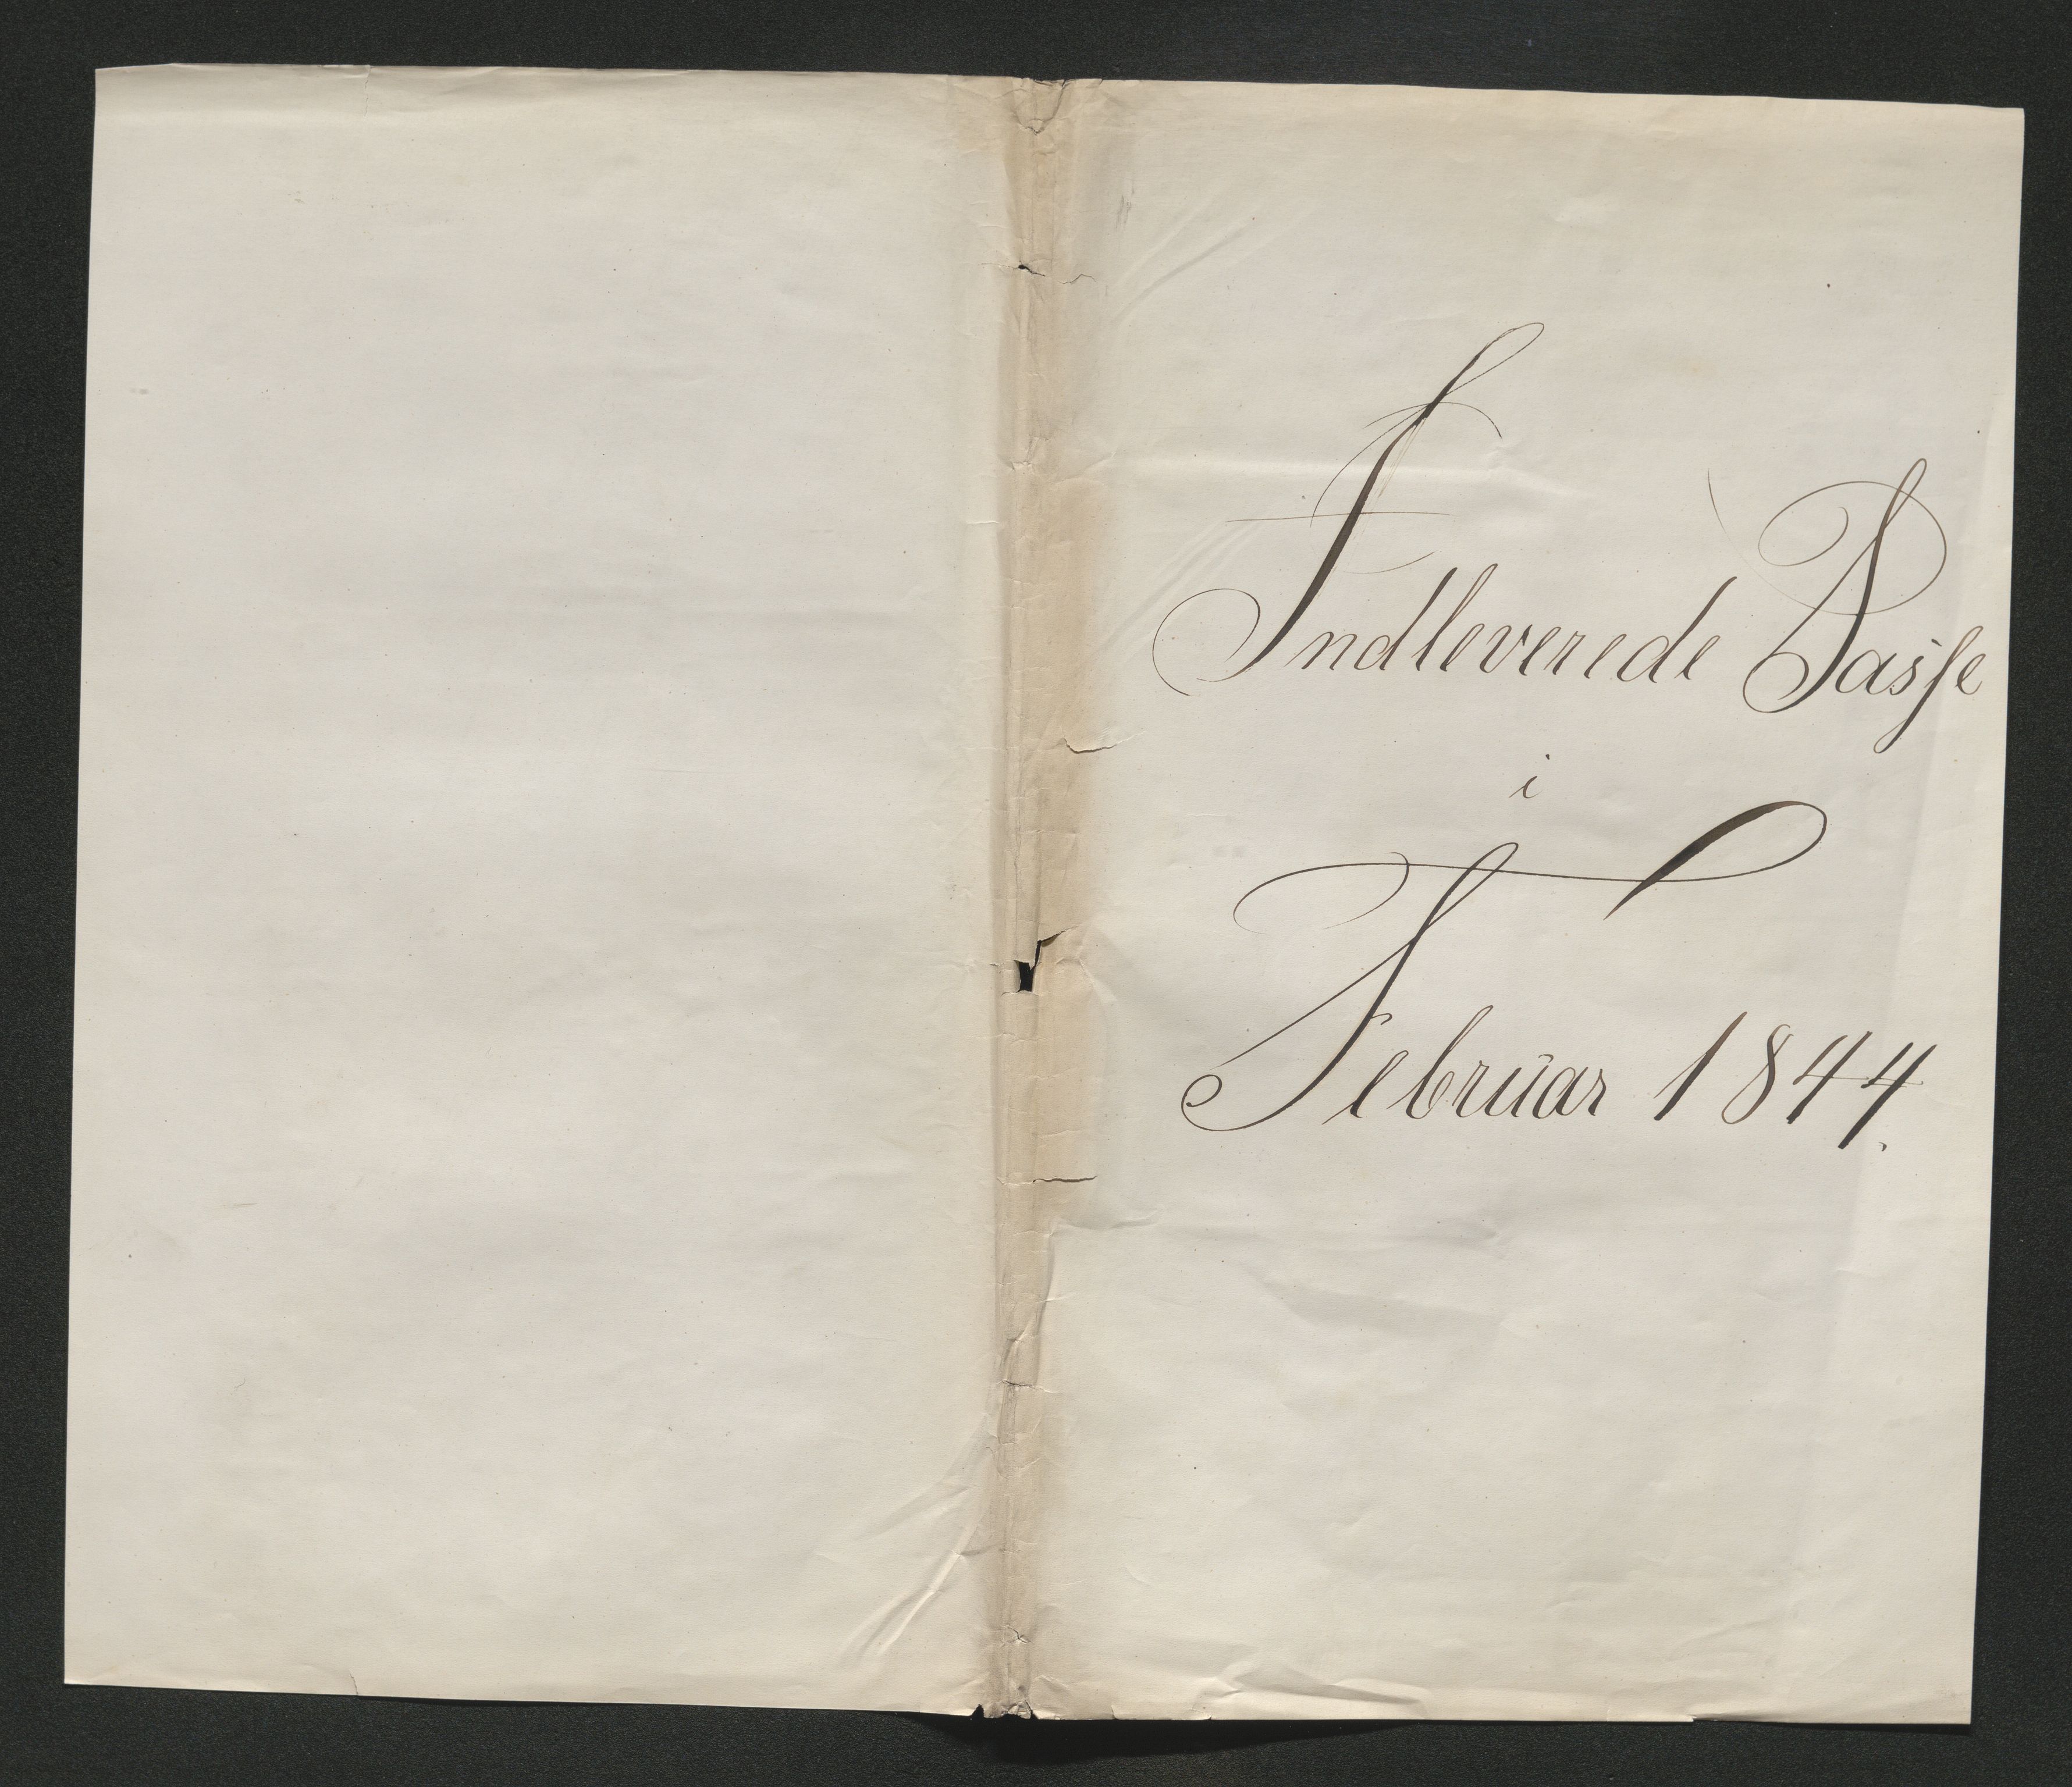 Indleverede Passe
i
Februar 1844.